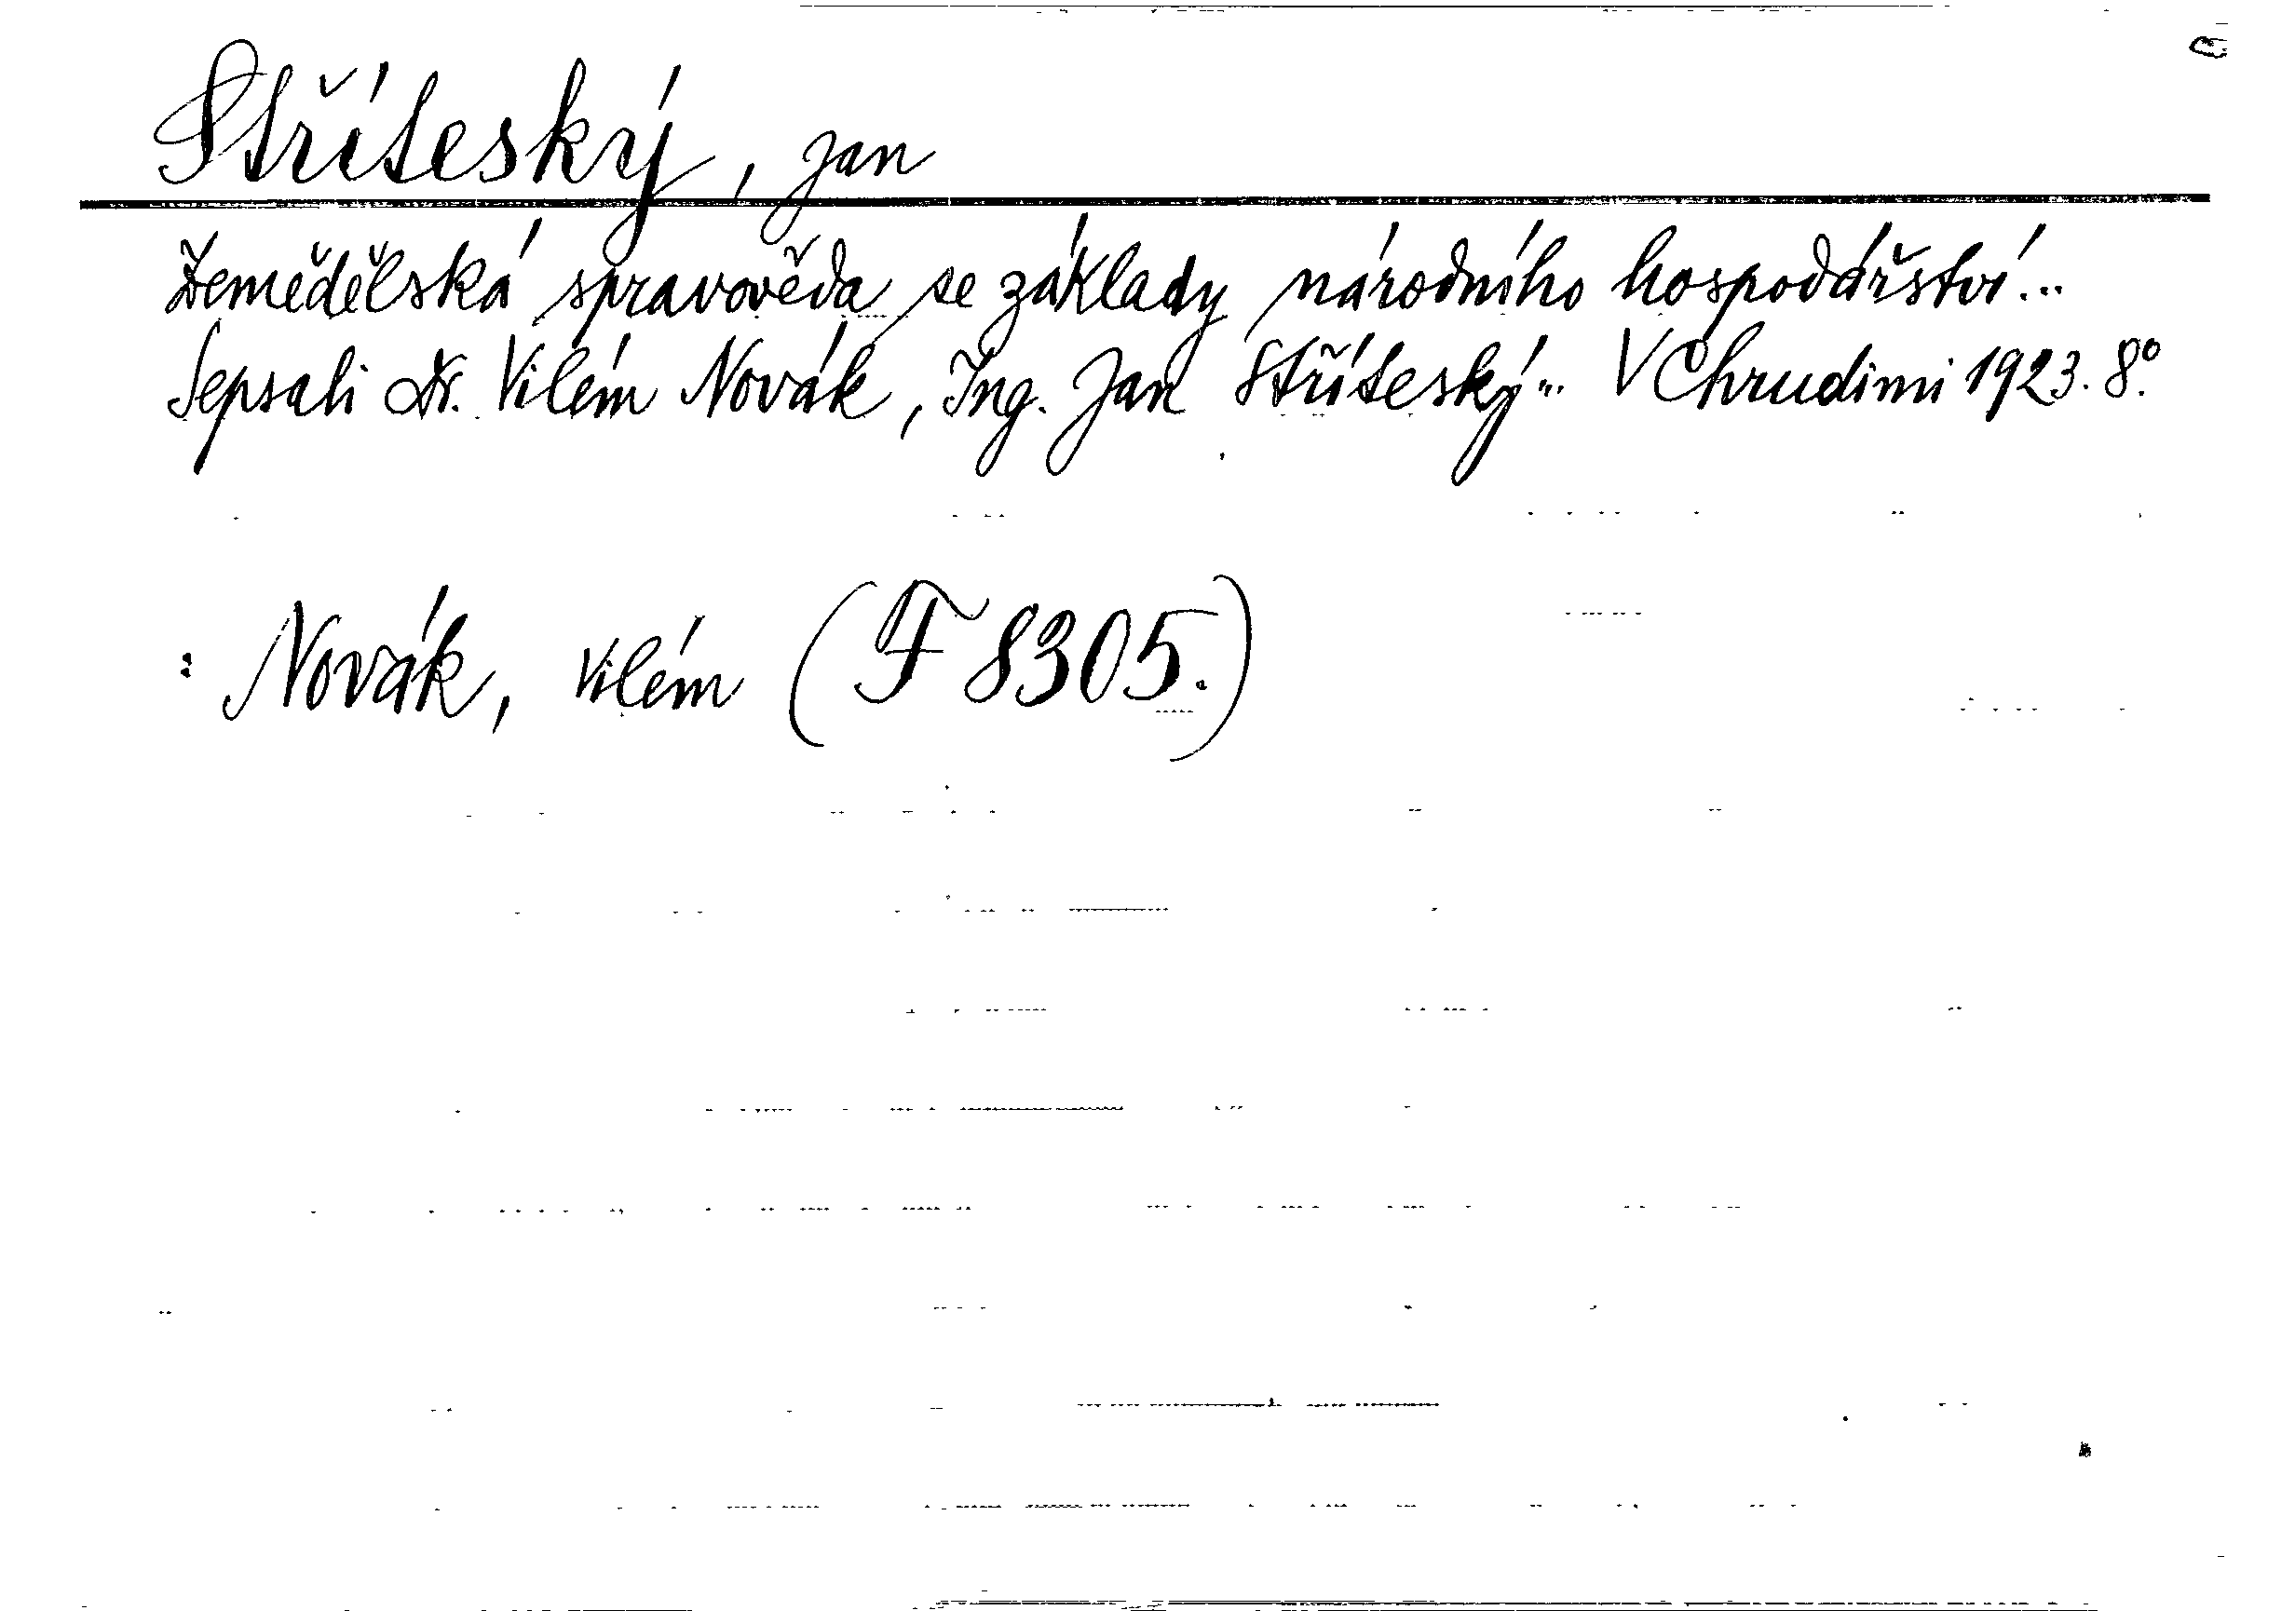 Stříteský, Jan
Zemědělská spravověda se základy národního hospodářství...
Sepsali Dr. Vilém Novák, Ing. Jan Stříteský... V Chrudimi 1923. 8°.
: Novák, Vilém (F 8305.)